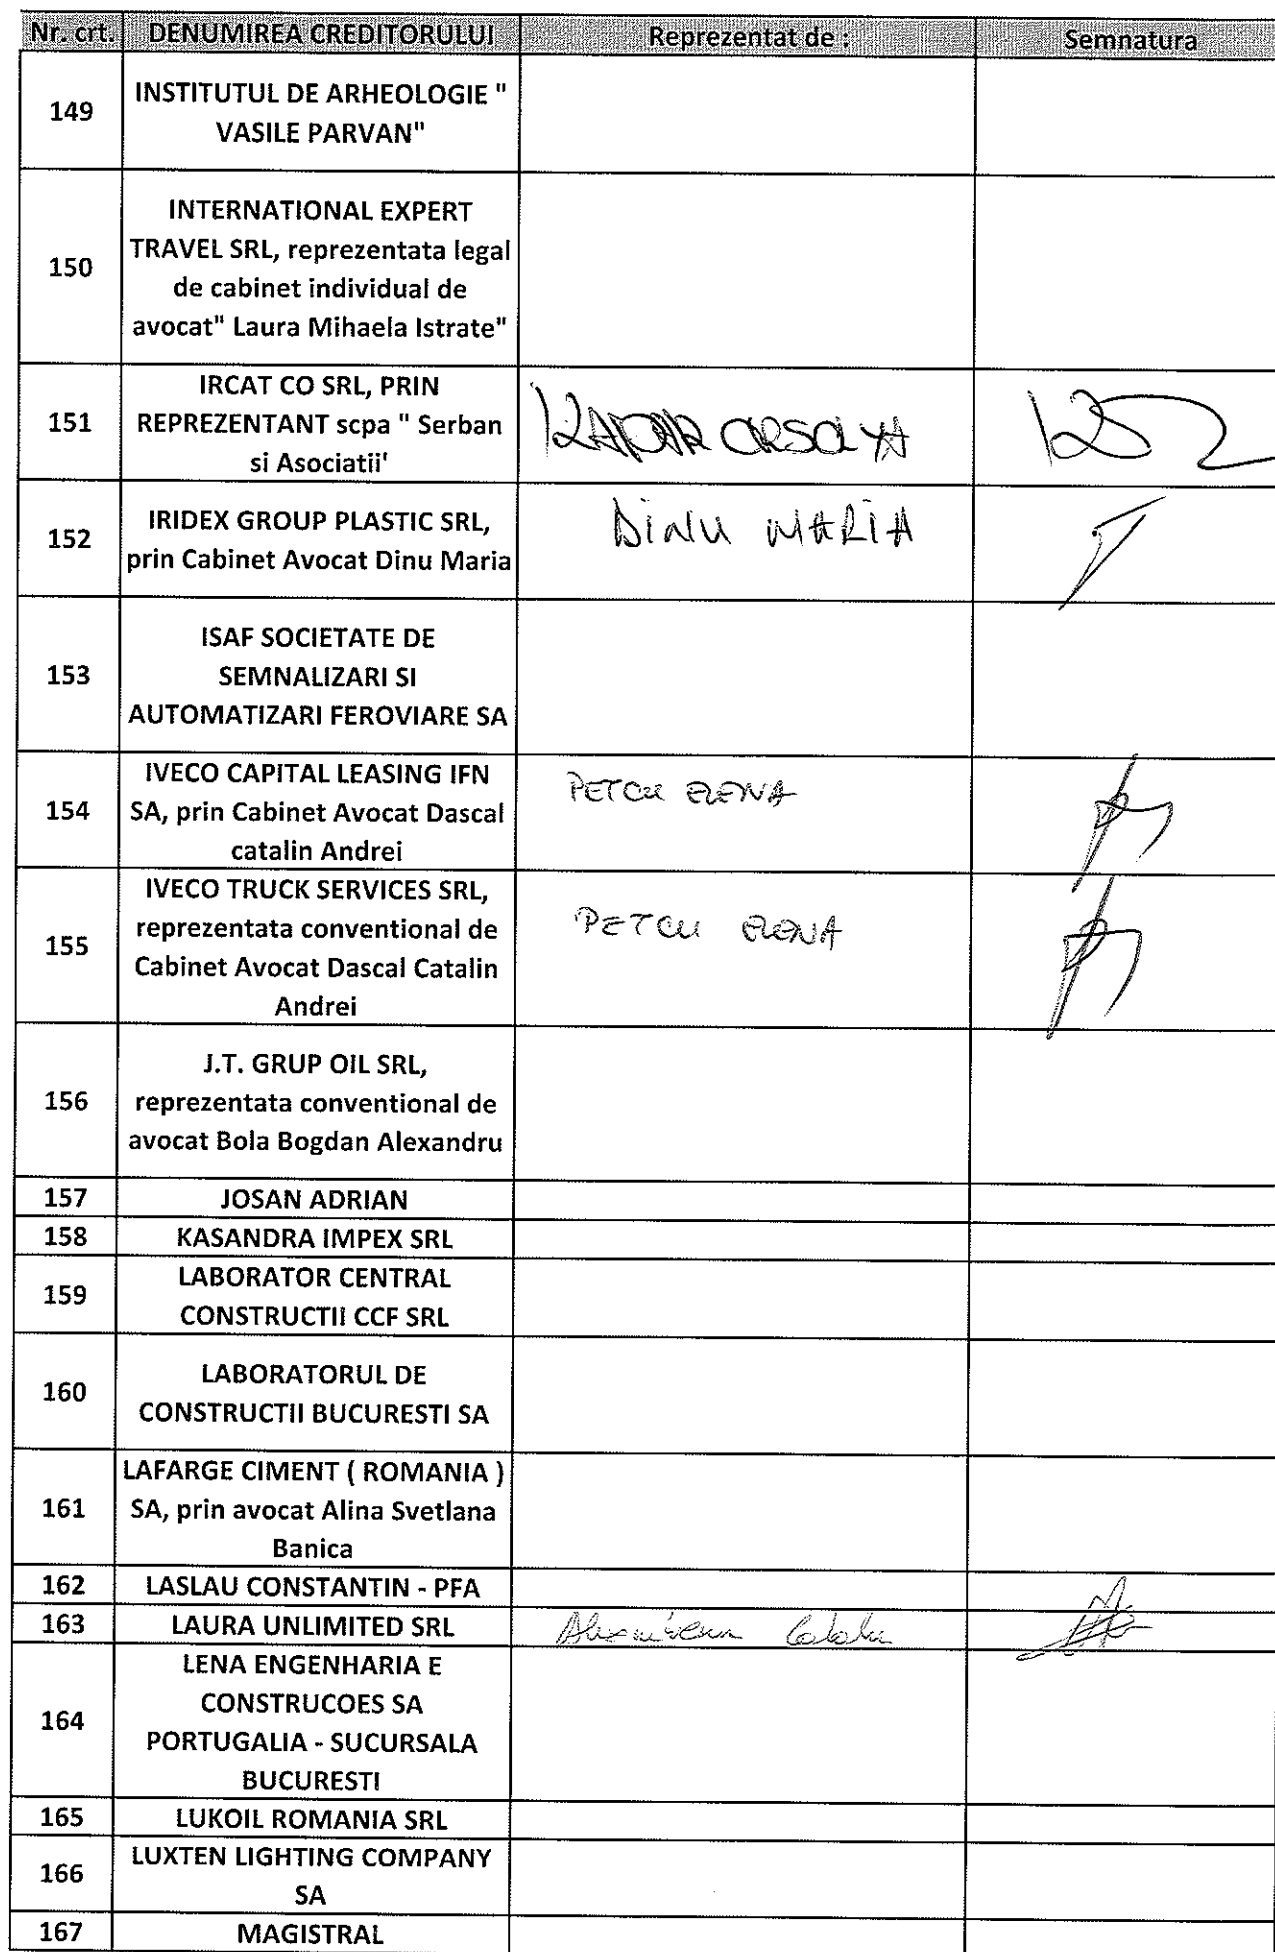 Nr. crt. DENUMIREA CREDITORULUI Reprezentat de : Semnatura
149 INSTITUTUL DE ARHEOLOGIE "
VASILE PARVAN"
150 INTERNATIONAL EXPERT
TRAVEL SRL, reprezentata legal
de cabinet individual de
avocat" Laura Mihaela Istrate"
151 IRCAT CO SRL, PRIN
REPREZENTANT scpa " Serban
si Asociatii'
ORSOLYA
152 IRIDEX GROUP PLASTIC SRL,
prin Cabinet Avocat Dinu Maria
DINU MARIA
153 ISAF SOCIETATE DE
SEMNALIZARI SI
AUTOMATIZARI FEROVIARE SA
154 IVECO CAPITAL LEASING IFN
SA, prin Cabinet Avocat Dascal
catalin Andrei
PETCU ELENA
155 IVECO TRUCK SERVICES SRL,
reprezentata conventional de
Cabinet Avocat Dascal Catalin
Andrei
PETCU ELENA
156 J.T. GRUP OIL SRL,
reprezentata conventional de
avocat Bola Bogdan Alexandru
157 JOSAN ADRIAN
158 KASANDRA IMPEX SRL
159 LABORATOR CENTRAL
CONSTRUCTII CCF SRL
160 LABORATORUL DE
CONSTRUCTII BUCURESTI SA
161 LAFARGE CIMENT ( ROMANIA )
SA, prin avocat Alina Svetlana
Banica
162 LASLAU CONSTANTIN - PFA
163 LAURA UNLIMITED SRL
164 LENA ENGENHARIA E
CONSTRUCOES SA
PORTUGALIA - SUCURSALA
BUCURESTI
165 LUKOIL ROMANIA SRL
166 LUXTEN LIGHTING COMPANY
SA
167 MAGISTRAL